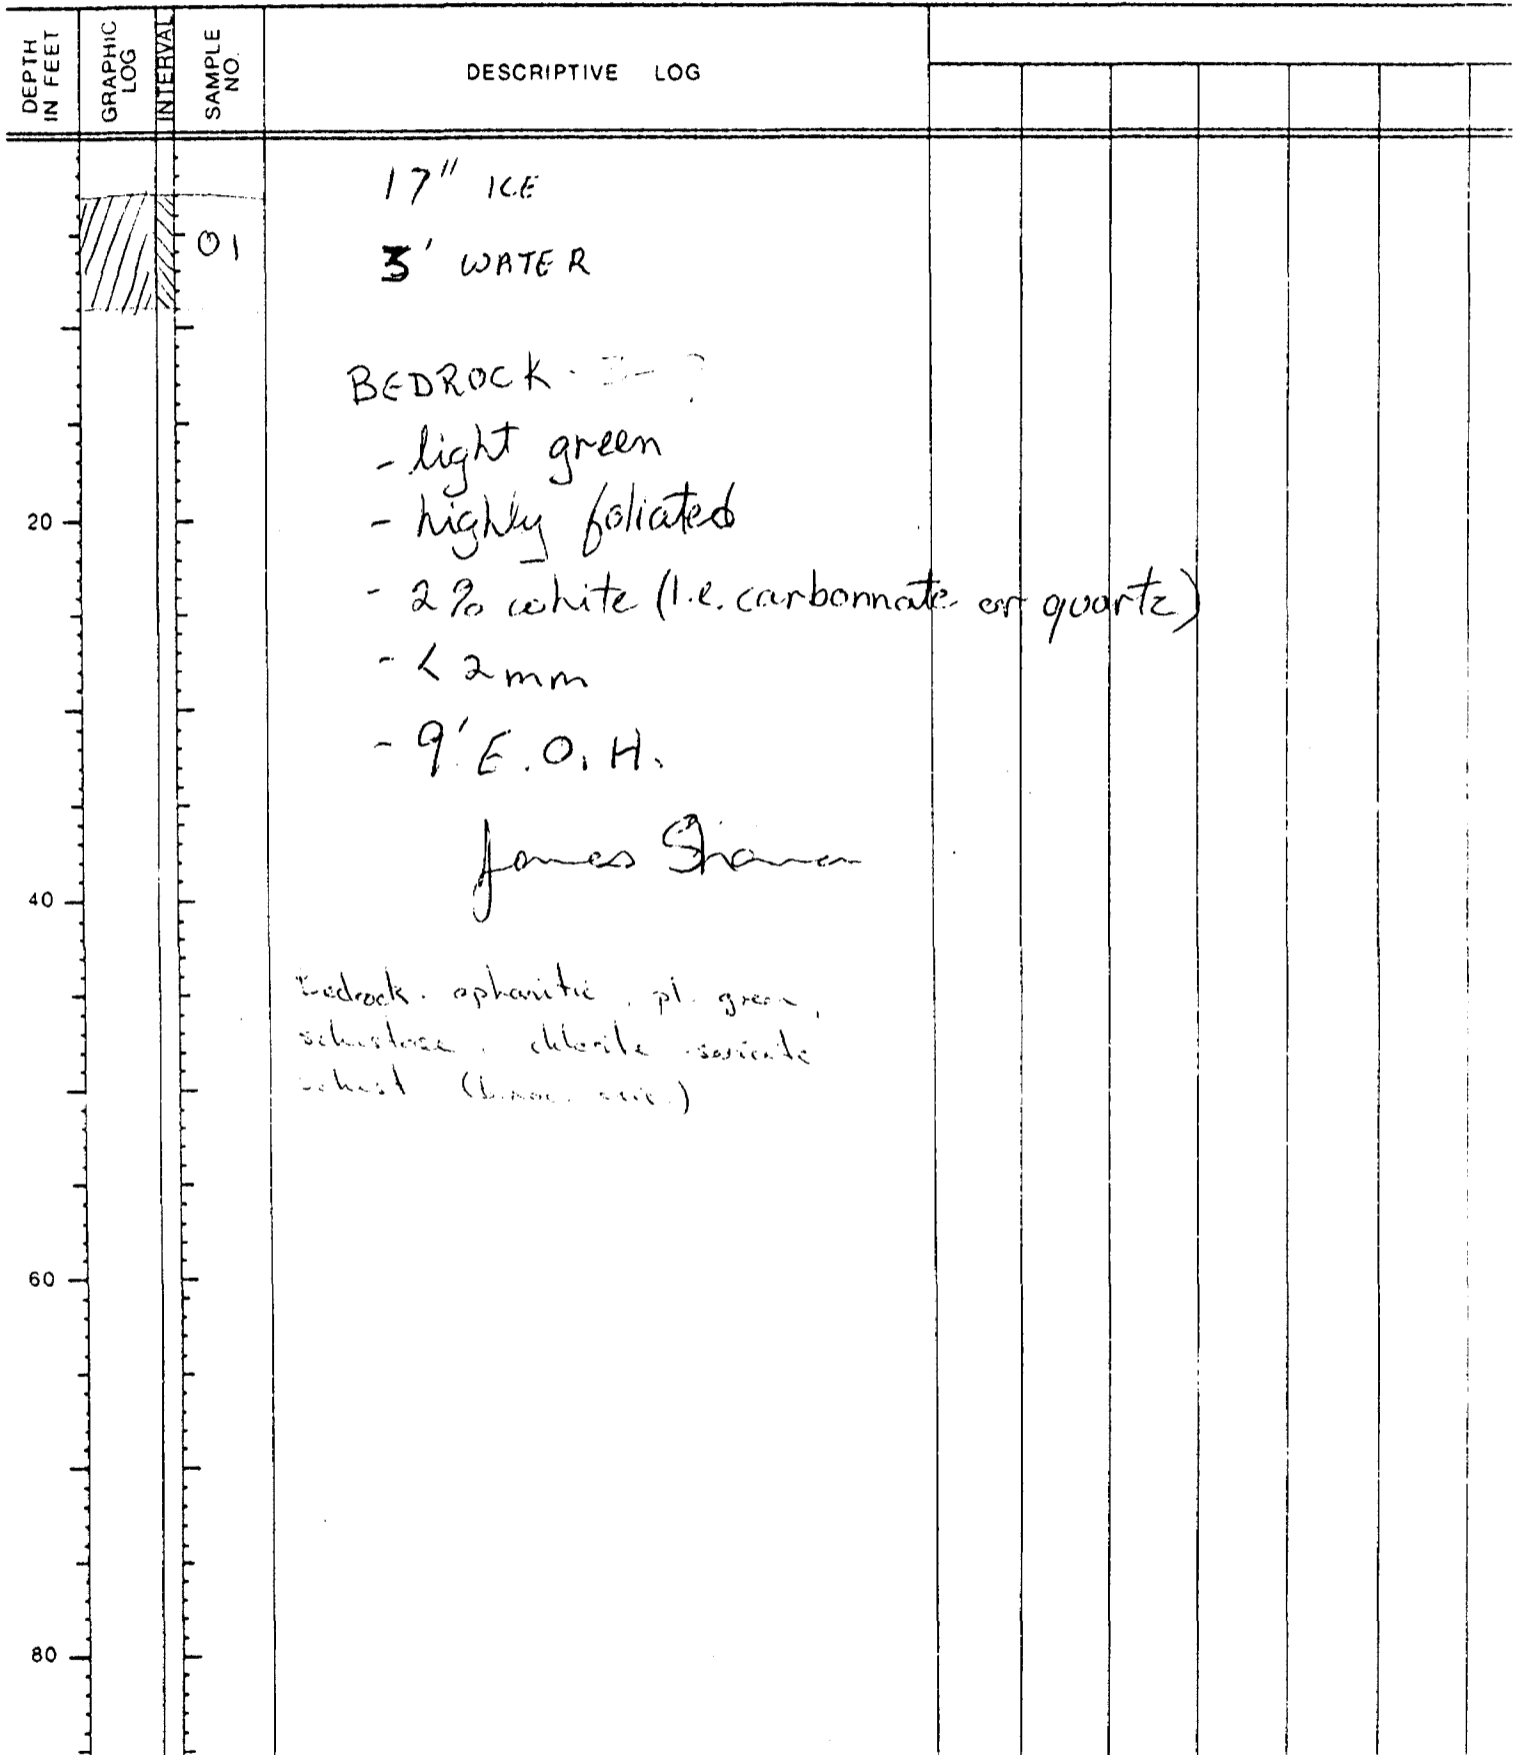 DEPTH IN FEET
GRAPHIC LOG
INTERVAL
SAMPLE NO.
DESCRIPTIVE LOG
17" ICE
01
3' WATER
BEDROCK
- light green
20
- highly foliated
- 2% white (i.e. carbonnate or quartz)
- < 2mm
- 9' E.O.H.
James
40
Bedrock. aphanitic, pl. green,
schistose. chlorite sericite
schist
60
80